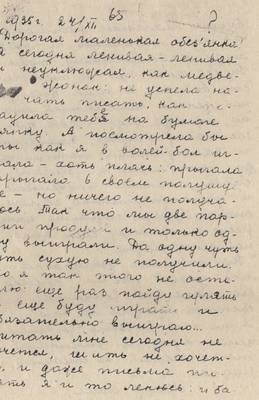 65
?
1935г. 24/XII
Дорогая маленькая обез'янка
Я сегодня ленивая-ленивая
и неуклюжая, как медве-
жонак: не успела на-
чать писать, как
тебе на бумаге
кляксу. А посмотрела бы
ты как я в волей-бол иг-
рала - хоть плачь: прыгала
прыгала в своем полушуб
ке - но ничего не получа-
лось. Так что мы две пар-
тии продули и только од-
ну выиграли. Да одну чуть
чуть сухую не получили.
Но я так этого не оста-
влю: еще раз пойду гулять
и еще буду играть и
обязательно выиграю...
Читать мне сегодня не
хочется, шить не хочет-
ся, и даже письма пи-
сать я и то ленюсь: и ба